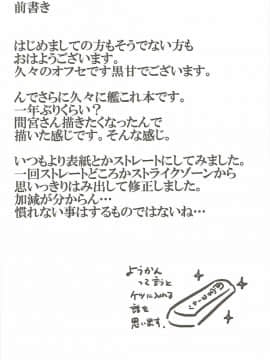 前書き
はじめましての方もそうでない方も
おはようございます。
久々のオフセです黒甘でございます。
んでさらに久々に艦これ本です。
一年ぶりくらい？
間宮さん描きたくなったんで
描いた感じです。そんな感じ。
いつもより表紙とかストレートにしてみました。
一回ストレートどころかストライクゾーンから
思いっきりはみ出して修正しました。
加減が分からん…
慣れない事はするものではないね…
ようかん
って言うと
ケツに入れる
話を
思います。